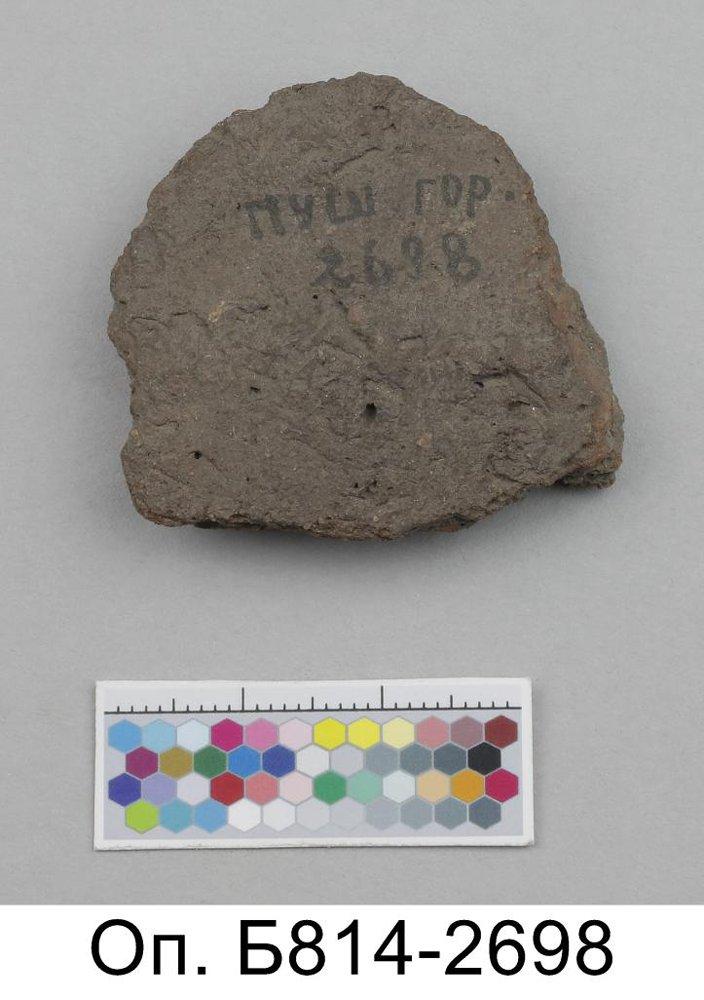 ПУШ ГОР.
2698
Оп. Б814-2698